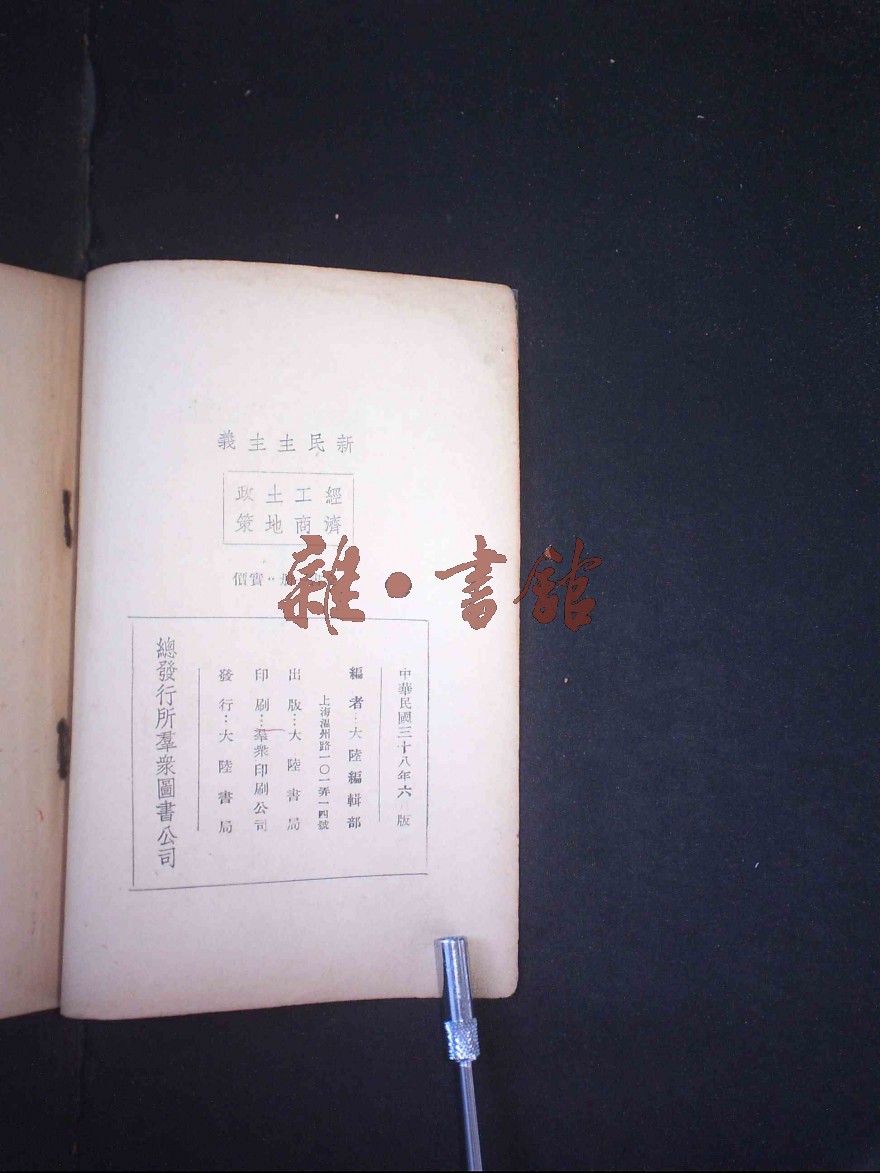 新民主主義
經濟 工商 土地 政策
實價
中華民國三十八年六 版
編者：大陸編輯部
上海溫州路一〇一弄一四號
出版：大陸書局
印刷：羣衆印刷公司
發行：大陸書局
總發行所羣衆圖書公司
雜·書館